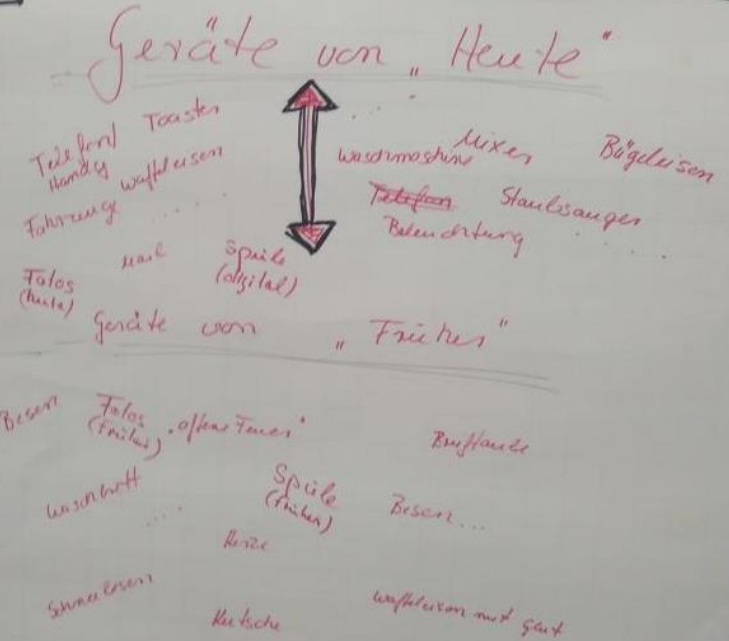 Geräte von „Heute"
Telefon/ Toaster
Handy Waffeleisen
Fahrzeuge .....
Mail
Fotos
(heute)
Spiele
(digital)
....
Mixer
Waschmaschine
Bügeleisen
Telefon
Staubsauger
Beleuchtung .....
Geräte von „Früher"
Besen
Fotos
(früher)
„offene Feuer"
Brieftaube
Waschbrett
....
Spiele
(früher)
Besen...
Kerze
Kutsche
Waffeleisen mit Glut